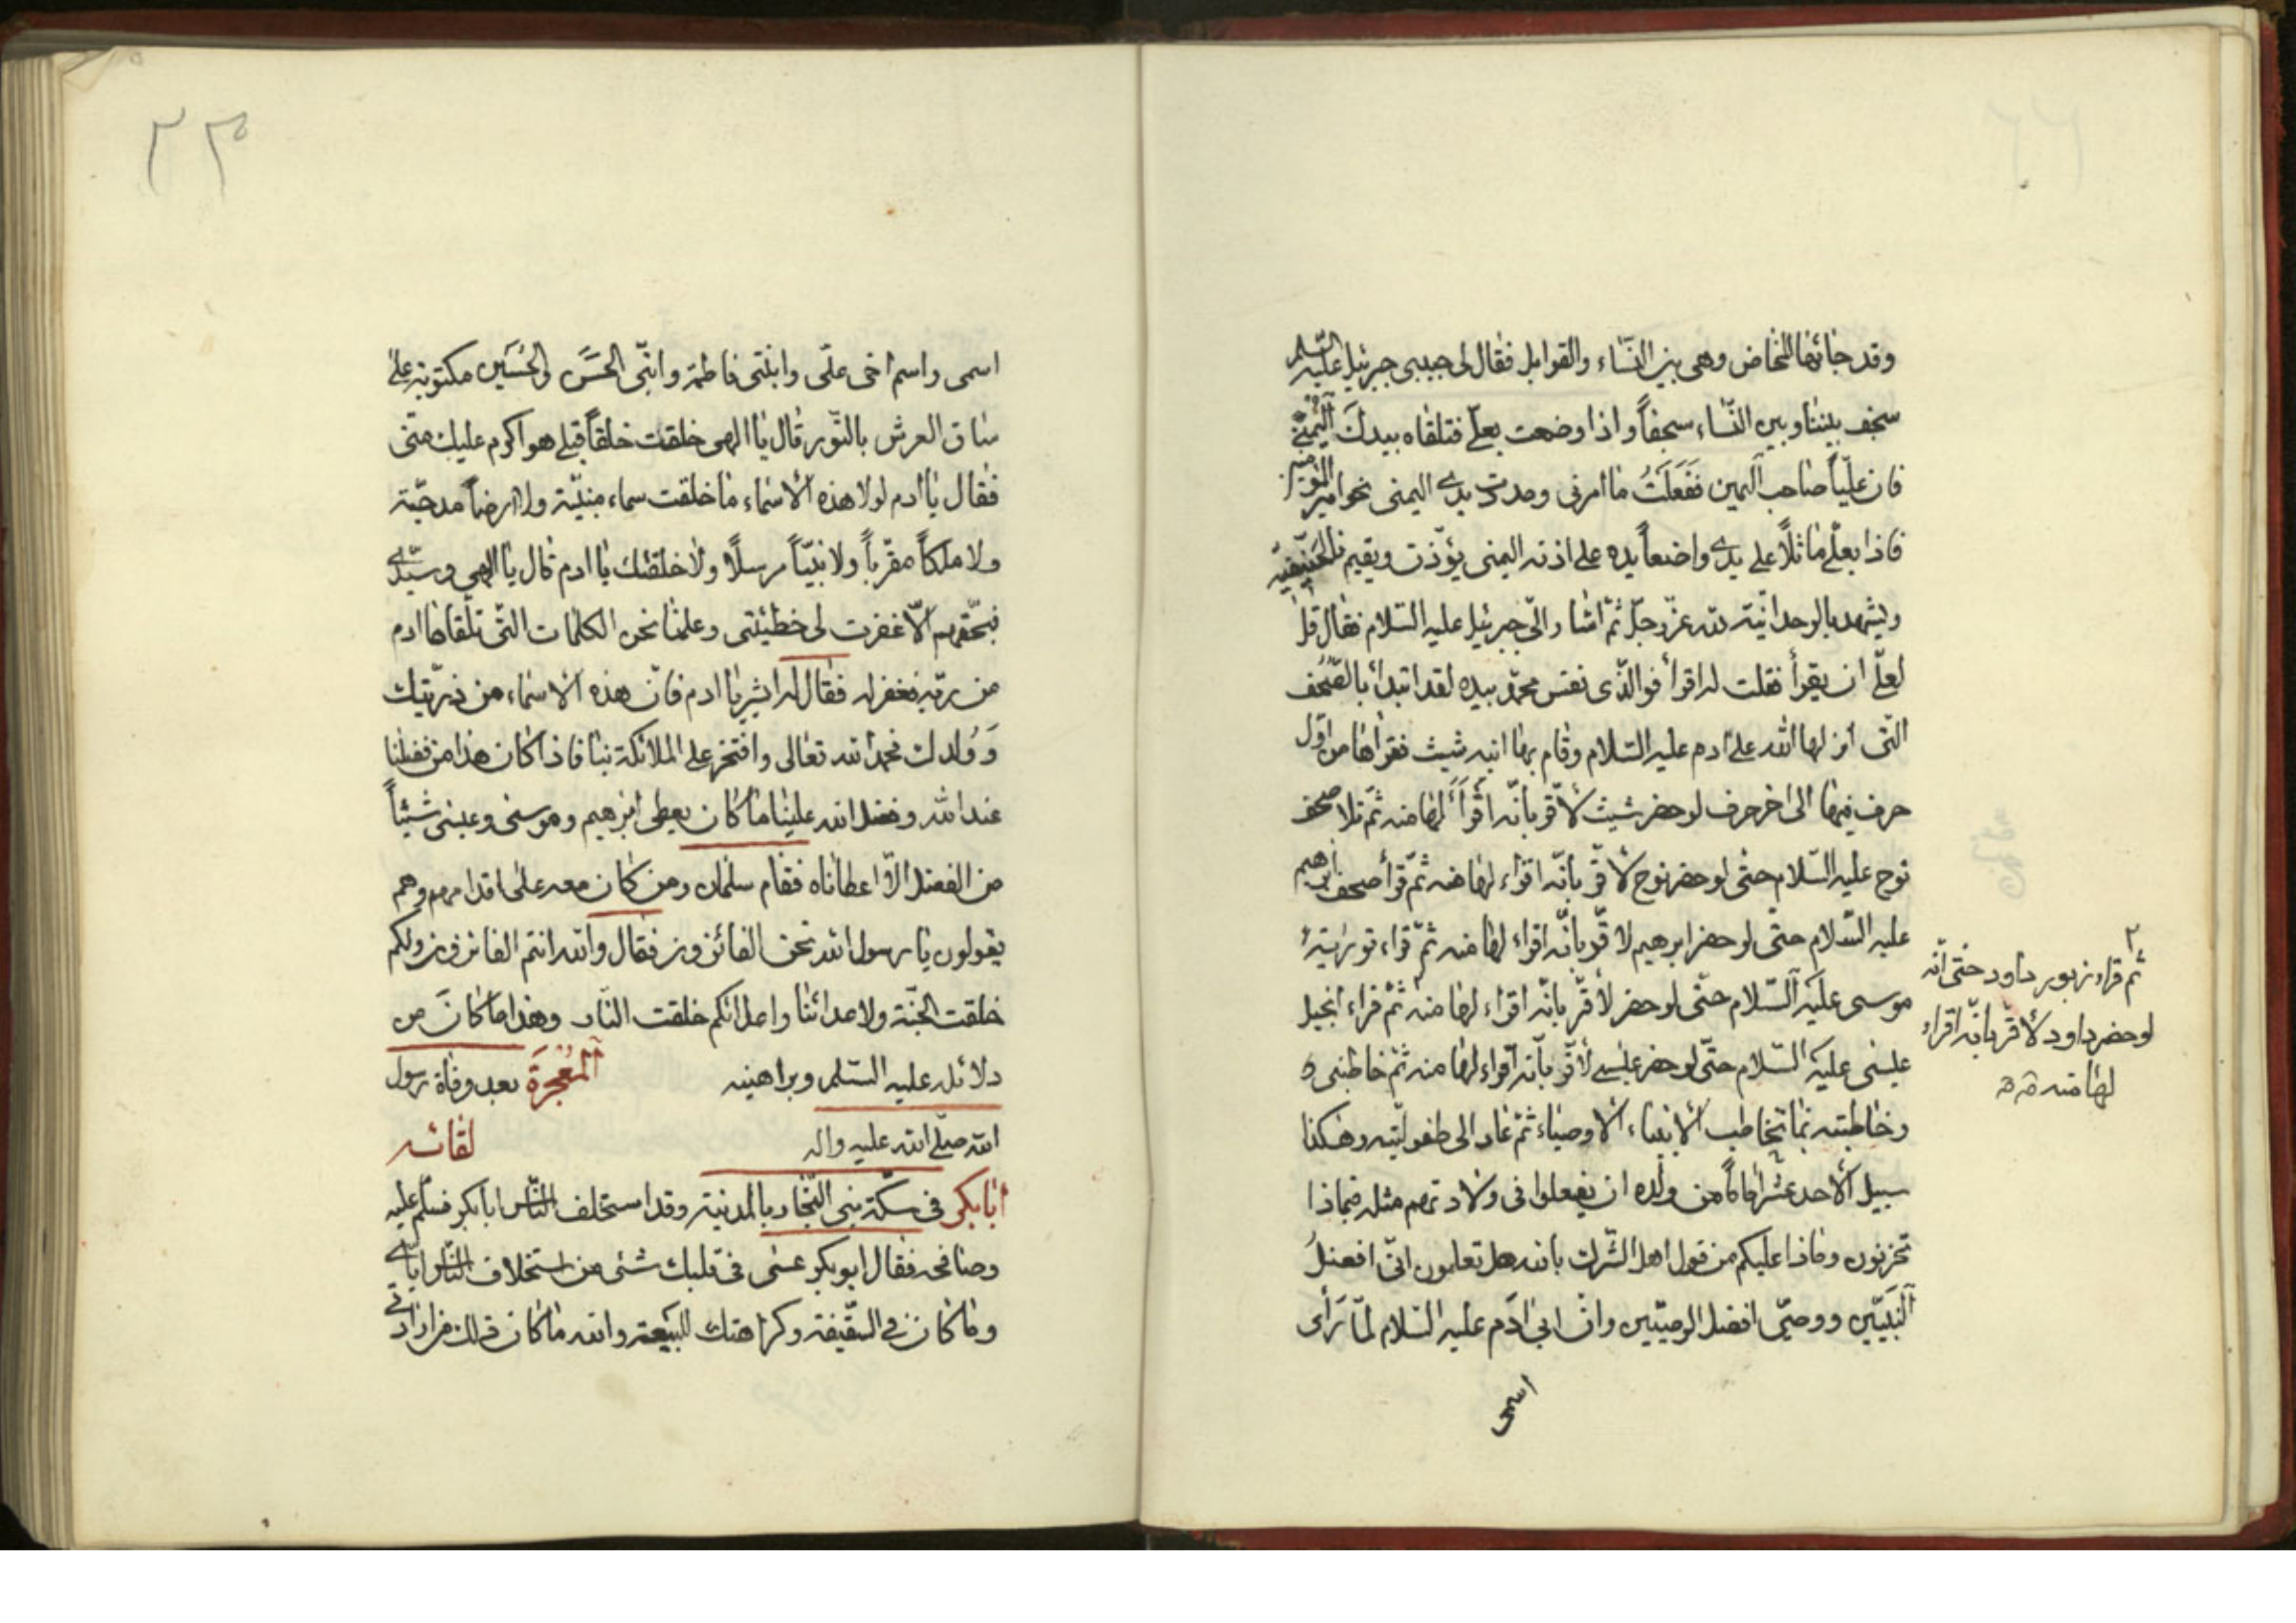 وقد جائها المخاض وهى بين النّساء والقوابل فقال لى حبيبى جبرئيل عليه السّلم
سجف بيننا وبين النّساء سجفاً واذا وضعت بعلىّ فتلقاه بيدك اليمنى
فان عليّاً صاحب اليمين ففعلت ما امرنى ومددت يدى اليمنى نحو امّه
فاذا بعلىّ ماثلاً على يدى واضعاً يده على اذنه اليمنى يؤذّن ويقيم بالحنيفيّة
ويشهد بالوحدانيّة لله عزّ وجلّ ثمّ اشار الىّ جبرئيل عليه السّلام فقال قل
لعلىّ ان يقرأ فقلت له اقرأ فو الّذى نفس محمّد بيده لقد ابتدأ بالصّحف
التّى انزلها الله على ادم عليه السّلام وقام بها ابنه شيث فقرأها من اوّل
حرف فيها الى اخر حرف لو حضر شيث لأقرّ بانّه اقرأ لها منه ثمّ تلا صحف
نوح عليه السّلام حتّى لو حضر نوح لأقرّ بانّه اقراء لها منه ثمّ قرأ صحف ابرهيم
عليه السّلام حتّى لو حضر ابرهيم لاقرّ بانّه اقراء لها منه ثمّ قراء تورية
موسى عليه السّلام حتّى لو حضر لأقرّ بانّه اقراء لها منه ثمّ قراء انجيل
عيسى عليه السّلام حتّى لو حضر عيسى لأقرّ بانّه اقراء لها منه ثمّ خاطبنى
وخاطبته بما يخاطب الأنبياء الأوصياء ثمّ عاد الى طفوليّته وهكذا
سبيل الأحد عشر اماماً من ولده ان يفعلوا فى ولادتهم مثله فبماذا
تحزنون وماذا عليكم من قول اهل الشّرك بالله هل تعلمون انّى افضل
النّبيّين ووصيّى افضل الوصيّين وانّ ابى ادم عليه السّلام لمّا رأى
اسمى
٢
ثم قراء زبور داود حتى انّه
لو حضر داود لأقرّ بانّه اقراء
لها منه
٢٣
اسمى واسم اخى علىّ وابنتى فاطمة وابنىّ الحسن والحسين مكتوبة على
ساق العرش بالنّور قال يا الهى خلقت خلقاً قبلى هو اكرم عليك منّى
فقال يا ادم لولا هذه الأسماء ما خلقت سماء مبنيّة ولا ارضاً مدحيّة
ولا ملكاً مقرّباً ولا نبيّاً مرسلاً ولا خلقتك يا ادم قال يا الهى وسيّدى
فبحقّهم الّا غفرت لى خطيئتى وعلمنا نحن الكلمات التّى تلقاها ادم
من ربّه فغفر له فقال له ابشر يا ادم فانّ هذه الاسماء من ذرّيتك
وولدك فحمد الله تعالى وافتخر على الملائكة بنا فاذا كان هذا من فضلنا
عند الله وفضل الله علينا ما كان يعطى ابرهيم وموسى وعيسى شيئاً
من الفضل الّا اعطاناه فقام سلمان ومن كان معه على اقدامهم وهم
يقولون يا رسول الله نحن الفائزون فقال والله انتم الفائزون ولكم
خلقت الجنّة ولاعدائنا واعدائكم خلقت النّار وهذا ما كان من
دلائله عليه السّلم وبراهينه المعجزة بعد وفاة رسول
الله صلّى الله عليه واله لقائه
ابا بكر فى سكّة بنى النّجّار بالمدينة وقد استخلف النّاس ابا بكر فسلّم عليه
وصافحه فقال ابو بكر عسى فى قلبك شئى من استخلاف النّاس ايّاى
وما كان فى السّقيفة وكراهتك للبيعة والله ما كان ذلك من ارادتى